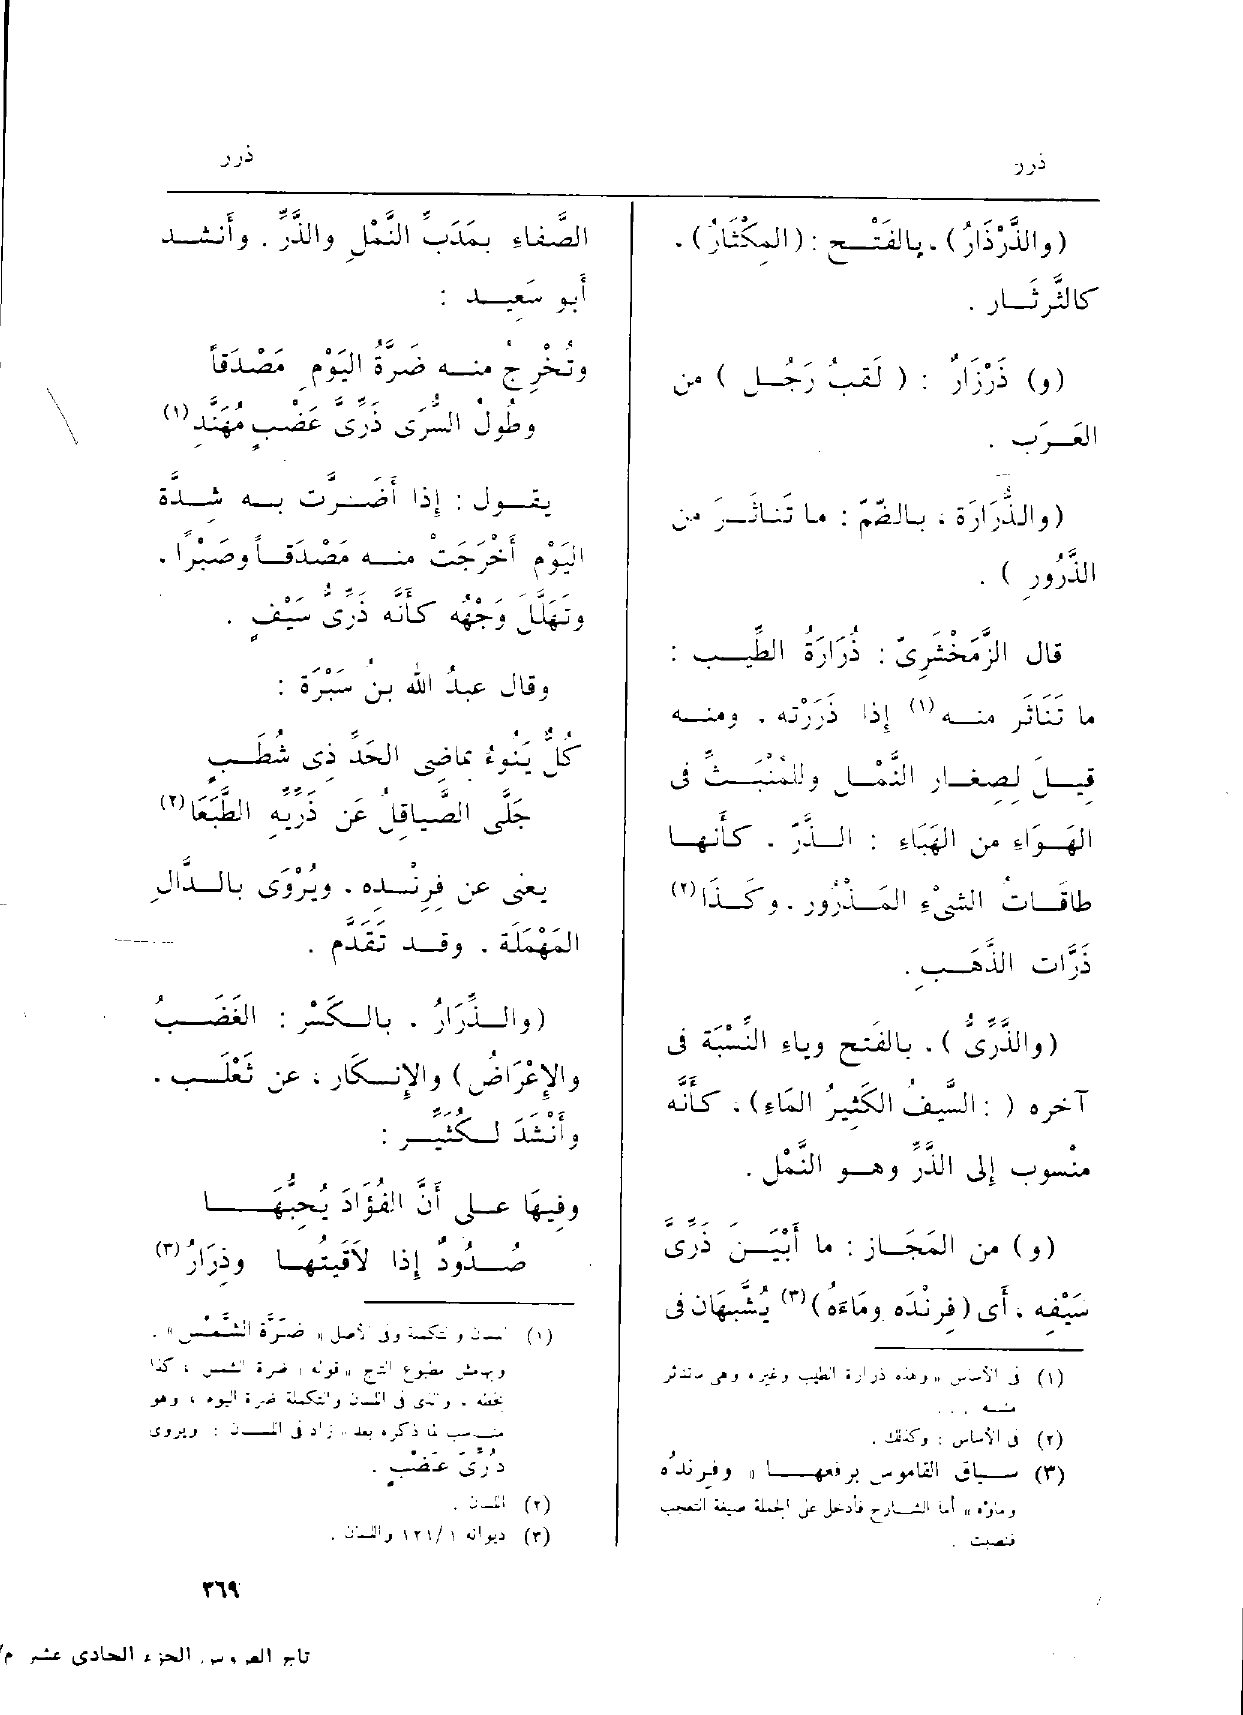 ذرر
ذرر
(والذَّرْذَارُ) ، بالفَتْح : (المِكْثَارُ) ،
كالثَّرثَار .
(و) ذَرْزَارٌ : ( لَقبُ رَجُل ) من
العَرَب .
(والذُّرَارَة ، بالضّمّ : ما تَناثَرَ من
الذَّرُورِ ) .
قال الزَّمَخْشَرِىّ : ذُرَارَةُ الطِّيب :
ما تَنَاثَر منه (١) إذا ذَرَرْته . ومنه
قيلَ لصِغار النَّمْل وللمُنْبَثِّ فى
الهَواءِ من الهَبَاءِ : الذَّرّ ، كأَنها
طاقَاتُ الشىْءِ المَذْرُور . وكَذَا (٢)
ذَرَّات الذَّهَبِ .
(والذَّرِّىُّ ) ، بالفَتح وياءِ النِّسْبَة فى
آخره ( : السَّيفُ الكَثيرُ المَاءِ) ، كأَنَّه
منْسوب إلى الذَّرِّ وهو النَّمْل .
(و) من المَجَاز : ما أَبْيَنَ ذَرِّىَّ
سَيْفِه ، أى (فِرِنْدَه ومَاءَهُ) (٣) يُشَبَّهَان فى
(١) فى الأساس « وهذه ذرارة الطيب وغيره وهى ماتناثر
منه ...
(٢) فى الأساس : وكذلك .
(٣) سياق القاموس برفعها « وفِرِندُه
وماؤه » أما الشارح فأدخل على الجملة صيغة التعجب
فنصبت .
الصَّفاءِ بمَدَبِّ النَّمْلِ والذَّرِّ . وأَنشد
أَبو سَعِيد :
وتُخْرِجُ منه ضَرَّةُ اليَوْمِ مَصْدَقاً
وطُولُ السُّرَى ذَرِّىَّ عَضْبٍ مُهَنَّدِ (١)
يقول : إذا أَضَرَّت به شدَّة
اليَوْمِ أَخْرَجَتْ منه مَصْدَقاً وصَبْرًا ،
وتَهَلَّلَ وَجْهُه كأَنَّه ذَرِّىُّ سَيْفٍ .
وقال عبدُ الله بنُ سَبْرَة :
كُلٌّ يَنُوءُ بماضِى الحَدِّ ذى شُطَبٍ
جَلَّى الصَّياقِلُ عَن ذَرِّيِّه الطَّبَعَا (٢)
يعنى عن فِرِنْدِه ، ويُرْوَى بالدَّالِ
المُهْمَلَة . وقد تَقَدَّم .
(والذِّرَارُ ، بالكَسْر : الغَضَبُ
والإعْرَاضُ) والإنكار ، عن ثَعْلَب ،
وأَنْشَدَ لكُثَيِّر :
وفِيهَا على أَنَّ الفُؤَادَ يُحِبُّهَا
صُدُودٌ إذا لاَقَيْتُها وذِرَارُ (٣)
(١) اللسان والتكملة وفى الأصل « ضَرَّة الشَّمْس » .
وبهامش مطبوع التاج « قوله : ضرة الشمس ، كذا
بخطه ، والذى فى اللسان والتكملة ضرة اليوم ، وهو
مناسب لما ذكره بعد » زاد فى اللسان : ويروى
دُرِّىَّ عَضْبٍ .
(٢) اللسان .
(٣) ديوانه ١ /١٢١ واللسان .
٣٦٩
تاج العروس الجزء الحادى عشر م/